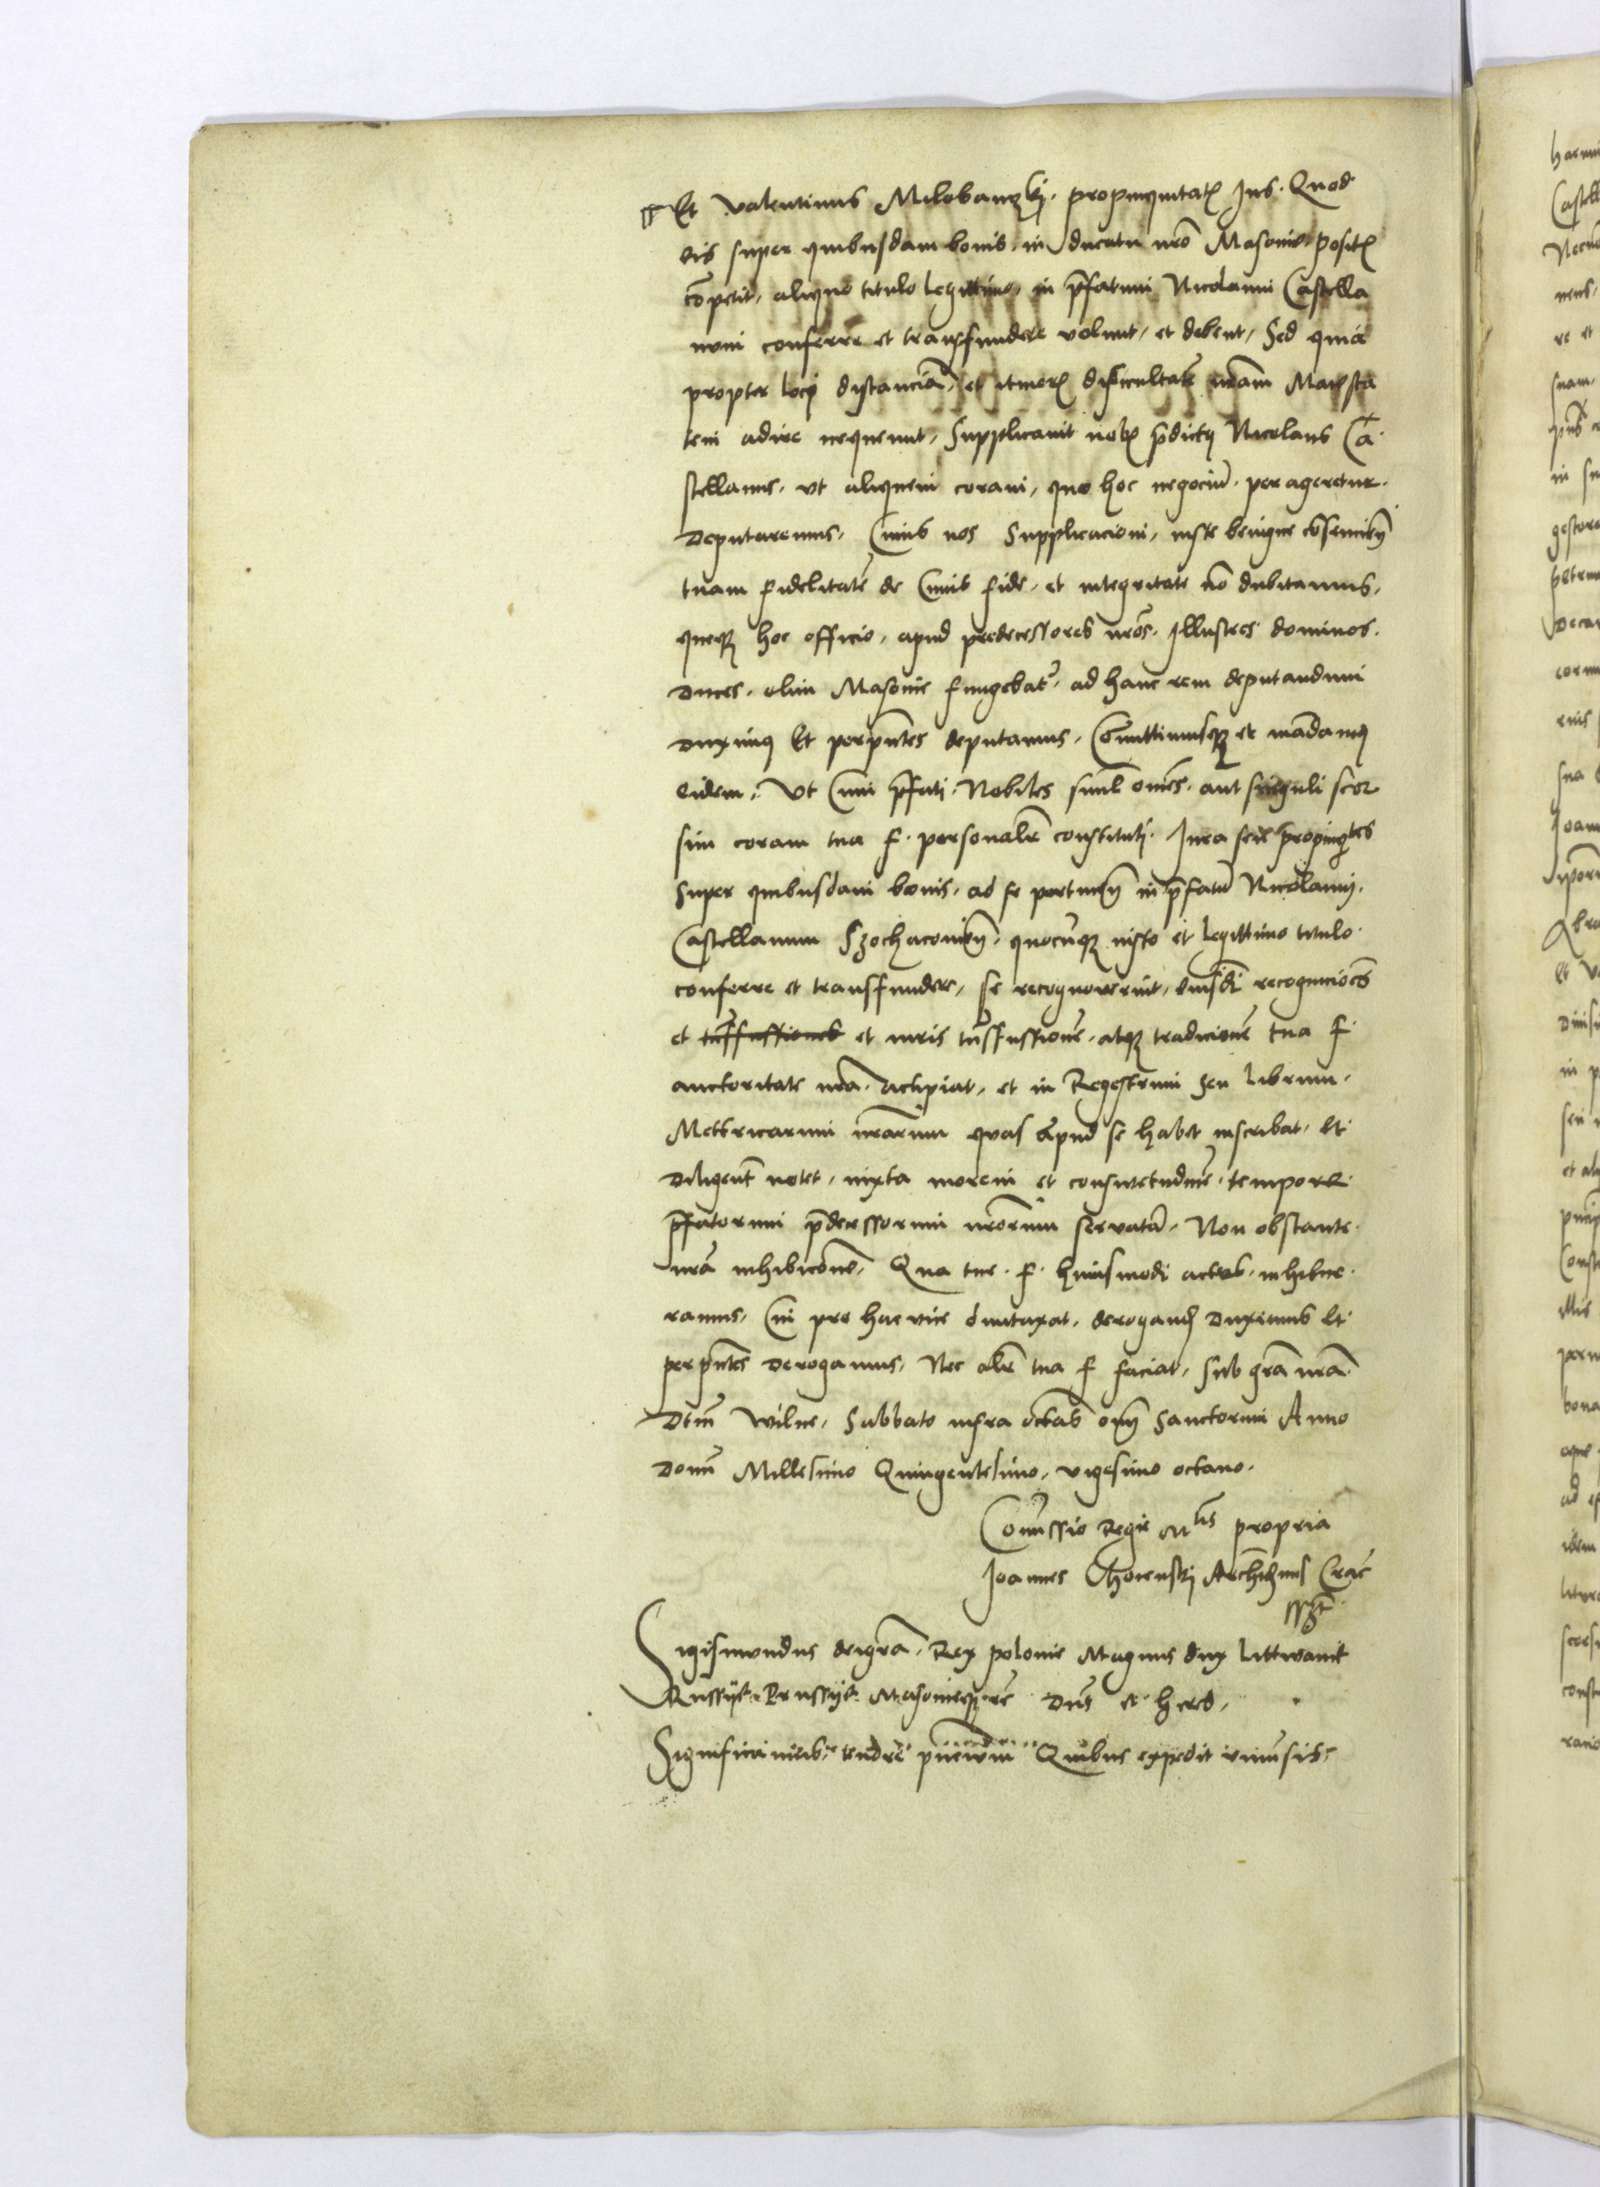 Et Valentinus Milobanczkÿ. propinquitat Jus. Quod
eis super quibusdam bonis. in ducatu nro Masovie. posit
cõpetit, aliquo titulo legittimo, in pfatum Nicolaum Castella
num conferre et transfundere volunt, et debent, Sed quia
propter loci distanciã, et itiner difficultatẽ nram Maiesta
tem adire nequeunt, Supplicavit nob pdictus Nicolaus Ca
stellanus, ut aliquem coram, quo hoc negociũ. peragereretur.
Deputaremus, Cuius nos Supplicacioni, iuste benigne cõsencien
tuam fidelitatẽ de Cuius fide, et integritate nõ dubitamus,
queque hoc officio, apud predecessores nros. Illustres dominos.
Duces, olim Masovie fungebat, ad hanc rem deputandum
duximus Et per pntes deputamus, Cõmittimusque et mãdamus
eidem, Ut Cum pfati. Nobiles simul oẽs. aut singuli seor
sim coram tua f. personalr constituti. Jura seu propinqtes
super quibusdam bonis, ad se pertineñ in pfatũ Nicolaum,
Castellanum Szochaczovieñ, quocũque iusto et legittimo titulo
conferre et transfundere, se recognoverint, huiusmõi recogniciões
et trãsfussiones et iuris trãsfussionẽ, atque tradicionẽ tua f.
auctoritate nra. accipiat, et in Regestrum seu librum,
Mettricarum nrarum quas apud se habet inscribat, Et
diligent notet, iuxta morem et consuetudinẽ, tempore
pfatorum pdecessorum nrorum servatã, Non obstante
nra inhibicõne, Qua tue. f. huiusmodi actus. inhibue
ramus, Cui pro hac vice duntaxat, derogand duximus Et
per pntes Derogamus, Nec alr tua f faciat, sub gra nra
Dtm Wilne, Sabbato infra octavas oĩm Sanctorum Anno
Domi Millesimo Quingentesimo, vigesimo octavo.
Comissio Regie Mtis propria
Joannes Choienskj Archidnus Crac
sszt
Sigismundus dei gra, Rex Polonie Magnus dux Littwanie
Russie Prussie Masovieque etc Dns et heres,
Significamus, tenore pncium Quibus expedit univsis,